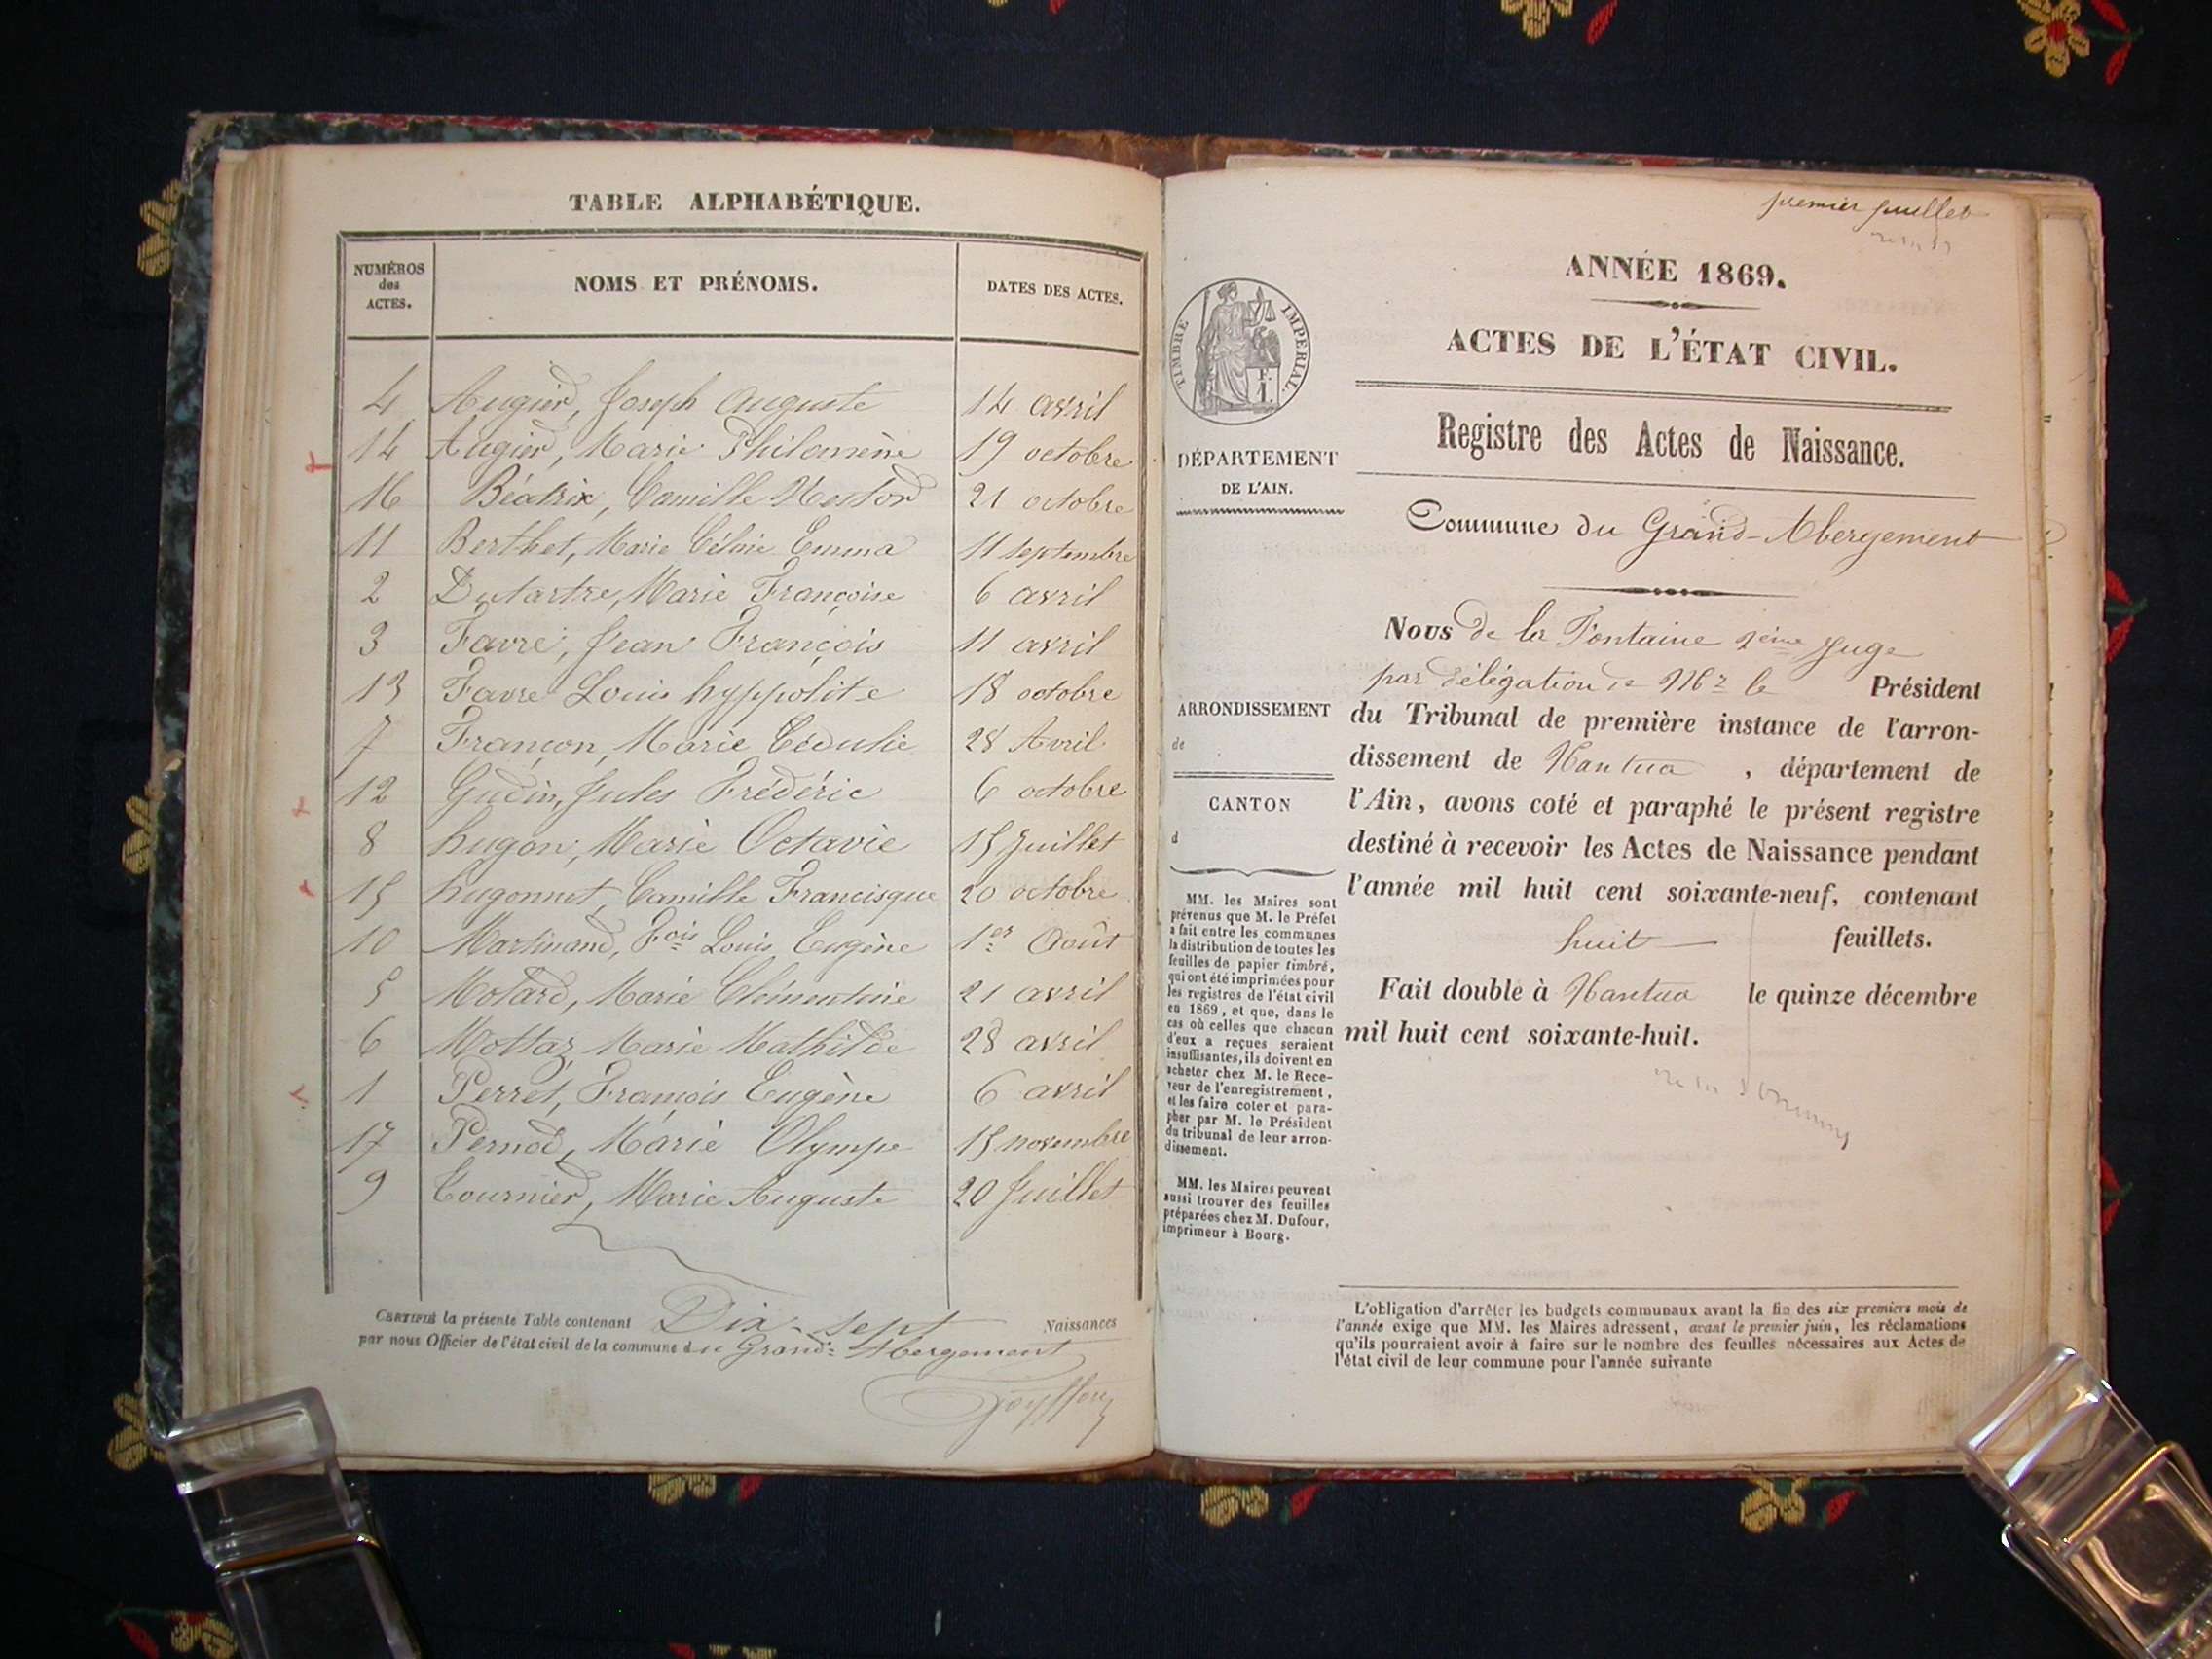 TABLE ALPHABÉTIQUE.
NUMÉROS des ACTES.
NOMS ET PRÉNOMS.
DATES DES ACTES.
4 Augier, Joseph Auguste 14 avril
14 Augier, Marie Philomène 19 octobre
16 Béatrix, Camille Nestor 21 octobre
11 Berthet, Marie Céline Emma 11 septembre
2 Dutartre, Marie Françoise 6 avril
3 Favre, Jean François 11 avril
13 Favre Louis hyppolite 18 octobre
7 Françon, Marie Cédulie 28 Avril
12 Gudin, Jules Frédéric 6 octobre
8 hugon, Marie Octavie 15 Juillet
15 hugonnet, Camille Francisque 20 octobre
10 Martinand, Fois Louis Eugène 1er Août
5 Molard, Marie Clémentine 21 avril
6 Mottaz, Marie Mathilde 28 avril
1 Perret, François Eugène 6 avril
17 Pernod, Marie Olympe 15 novembre
9 Tournier, Marie Auguste 20 Juillet
CERTIFIÉ la présente Table contenant Dix-sept Naissances
par nous Officier de l'état civil de la commune du Grand-Abergement
premier feuillet
ANNÉE 1869.
ACTES DE L'ÉTAT CIVIL.
Registre des Actes de Naissance.
Commune du Grand-Abergement
TIMBRE IMPÉRIAL.
F. 1.
DÉPARTEMENT
DE L'AIN.
ARRONDISSEMENT
de
CANTON
d
MM. les Maires sont
prévenus que M. le Préfet
a fait entre les communes
la distribution de toutes les
feuilles de papier timbré,
qui ont été imprimées pour
les registres de l'état civil
en 1869, et que, dans le
cas où celles que chacun
d'eux a reçues seraient
insuffisantes, ils doivent en
acheter chez M. le Rece-
veur de l'enregistrement,
et les faire coter et para-
pher par M. le Président
du tribunal de leur arron-
dissement.
MM. les Maires peuvent
aussi trouver des feuilles
préparées chez M. Dufour,
imprimeur à Bourg.
Nous de la Fontaine juge
par délégation de Mr le Président
du Tribunal de première instance de l'arron-
dissement de Nantua, département de
l'Ain, avons coté et paraphé le présent registre
destiné à recevoir les Actes de Naissance pendant
l'année mil huit cent soixante-neuf, contenant
huit feuillets.
Fait double à Nantua le quinze décembre
mil huit cent soixante-huit.
L'obligation d'arrêter les budgets communaux avant la fin des six premiers mois de
l'année exige que MM. les Maires adressent, avant le premier juin, les réclamations
qu'ils pourraient avoir à faire sur le nombre des feuilles nécessaires aux Actes de
l'état civil de leur commune pour l'année suivante